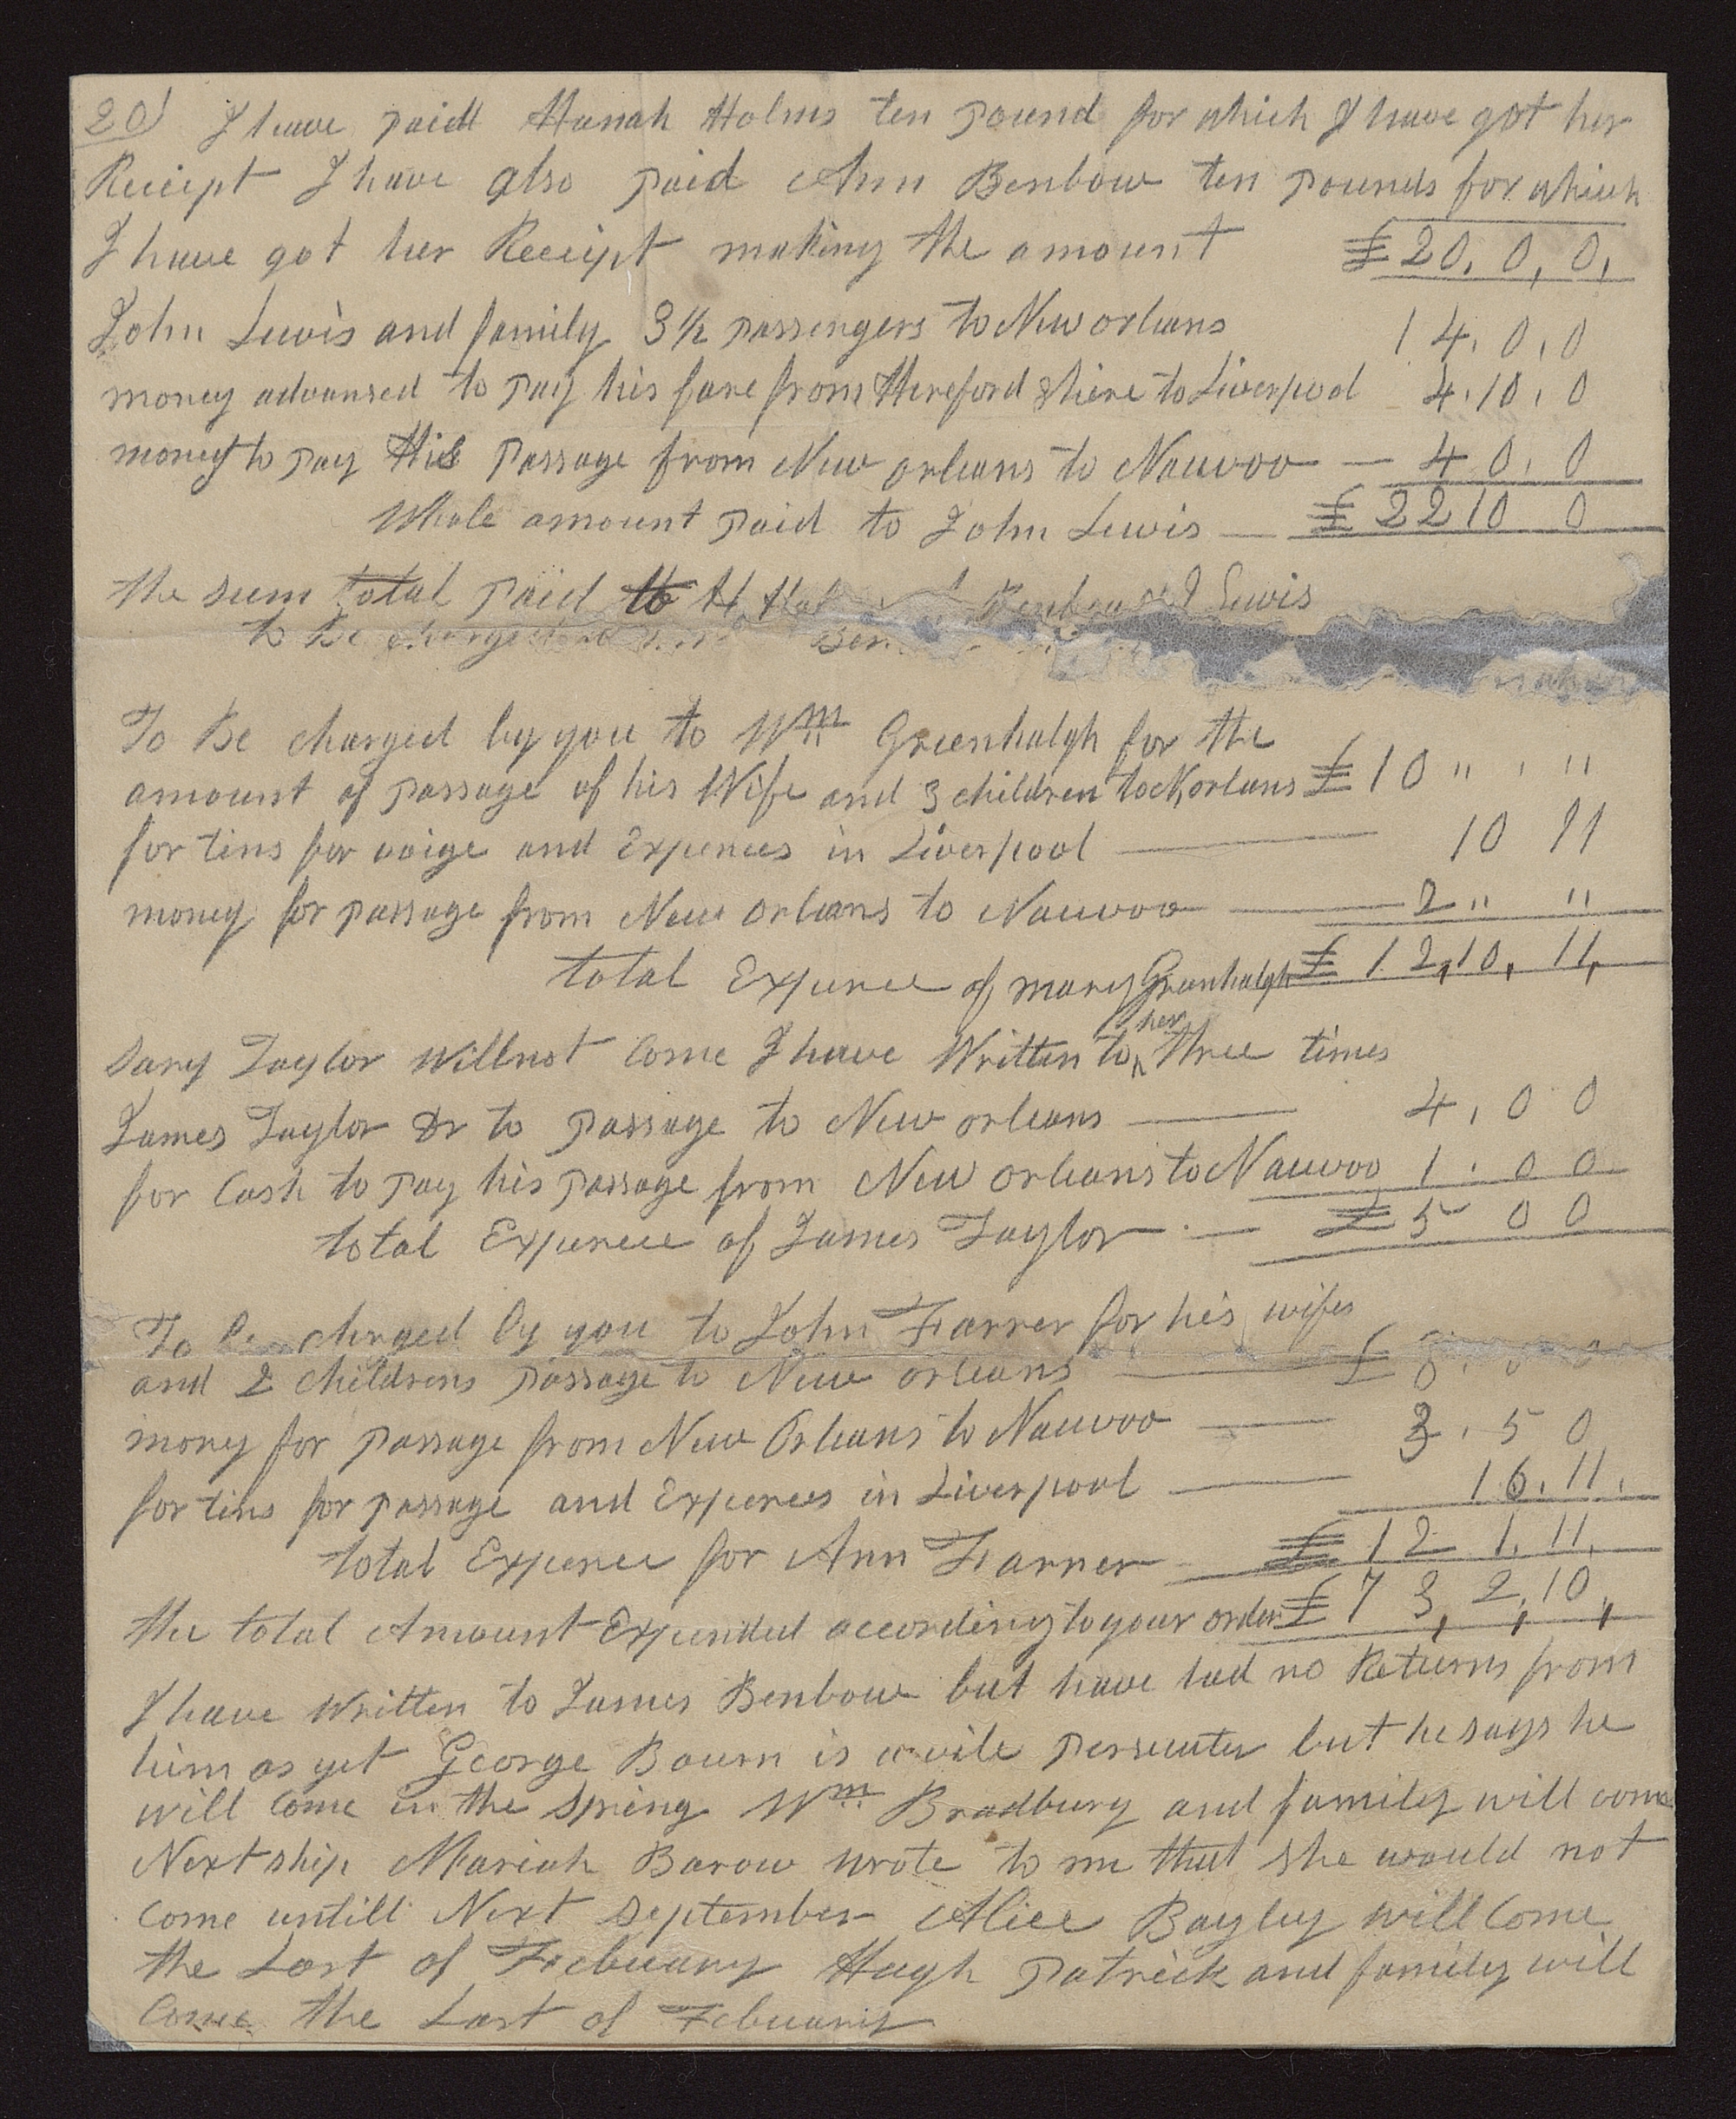 20) I have paid Hanah Holms ten pound for which I have got her
Reciept I have also paid Ann Benbow ten pounds for which
I have got her Receipt making the amount £20, 0, 0,
John Lewis and family 3½ passengers to New orleans 14, 0, 0
money advansed to pay his fare from Hereford shire to Liverpool 4, 10, 0
money to pay his passage from New orleans to Nauvoo — 4 0, 0
Whole amount paid to John Lewis — £ 22 10 0
the sum total paid to H Benbow Lewis
to be charged
To Be charged by you to Wm Greenhalgh for the
amount of passage of his Wife and 3 children to N, orleans £10 " , "
for tins for voige and Expences in Liverpool — 10 11
money for passage from New orleans to Nauvoo — 2 " "
total Expence of mary Greenhalgh £ 12, 10, 11,
Taylor will not Come I have Written to her three times
James Taylor Dr to passage to New orleans — 4, 0 0
for Cash to pay his passage from New orleans to Nauvoo 1. 0 0
total Expence of James Taylor — £ 5 0 0
To be charged by you to John Farrer for his wifes
and 2 childrens passage to New orleans — £ 8. 0 0
money for passage from New Orleans to Nauvoo — 3. 5 0
for tins for passage and Expences in Liverpool — 16. 11.
total Expence for Ann Farrer — £ 12 1. 11.
the total Amount Expended according to your order £ 73, 2, 10,
I have Written to James Benbow but have had no Returns from
him as yet George Bourn is a vile persecuter but he says he
will Come in the Spring Wm Bradbury and family will come
Next ship Mariah Barow wrote to me that she would not
Come untill Next September Alice Bayley will Come
the Last of Febuary Hugh Patrick and family will
Come the Last of Febuary